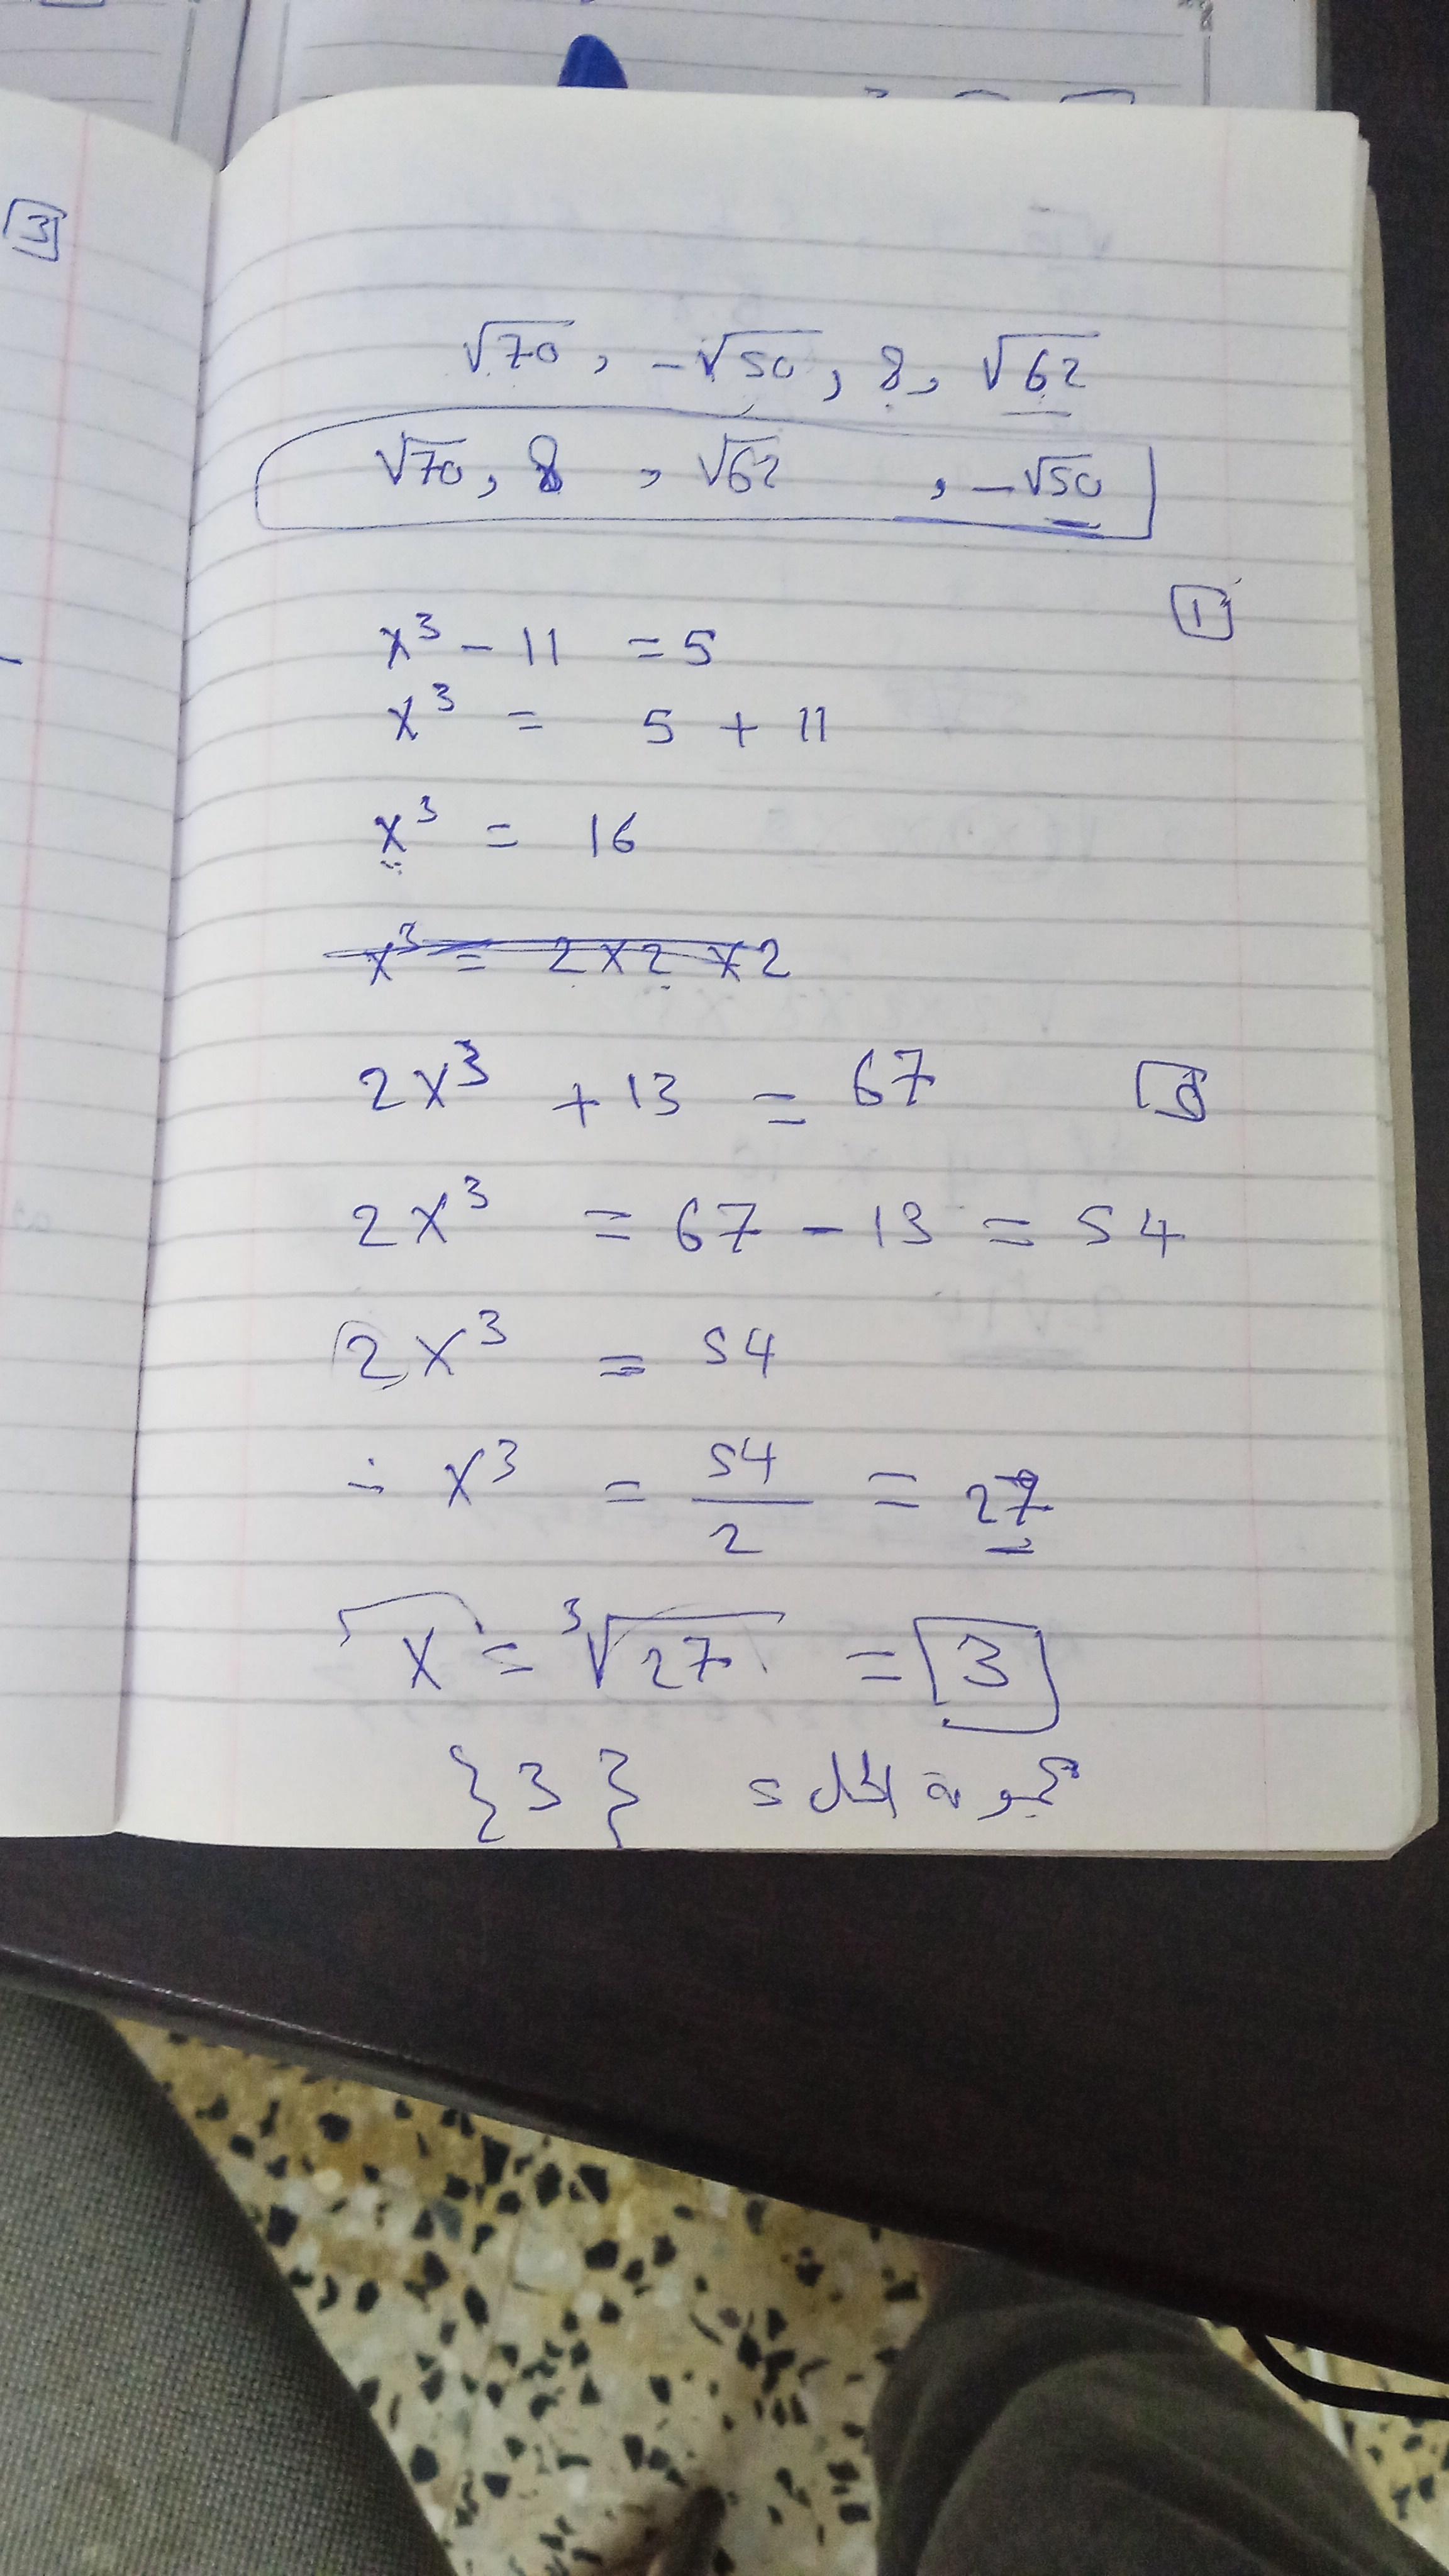 3
√70 , -√50 , 8 , √62
√70 , 8 , √62 , -√50
1
x³ - 11 = 5
x³ = 5 + 11
x³ = 16
x³ = 2 x 2 x 2
2x³ + 13 = 67
2x³ = 67 - 13 = 54
2x³ = 54
÷ x³ = 54/2 = 27
x = ³√27 = 3
مجموعة الحل = {3}